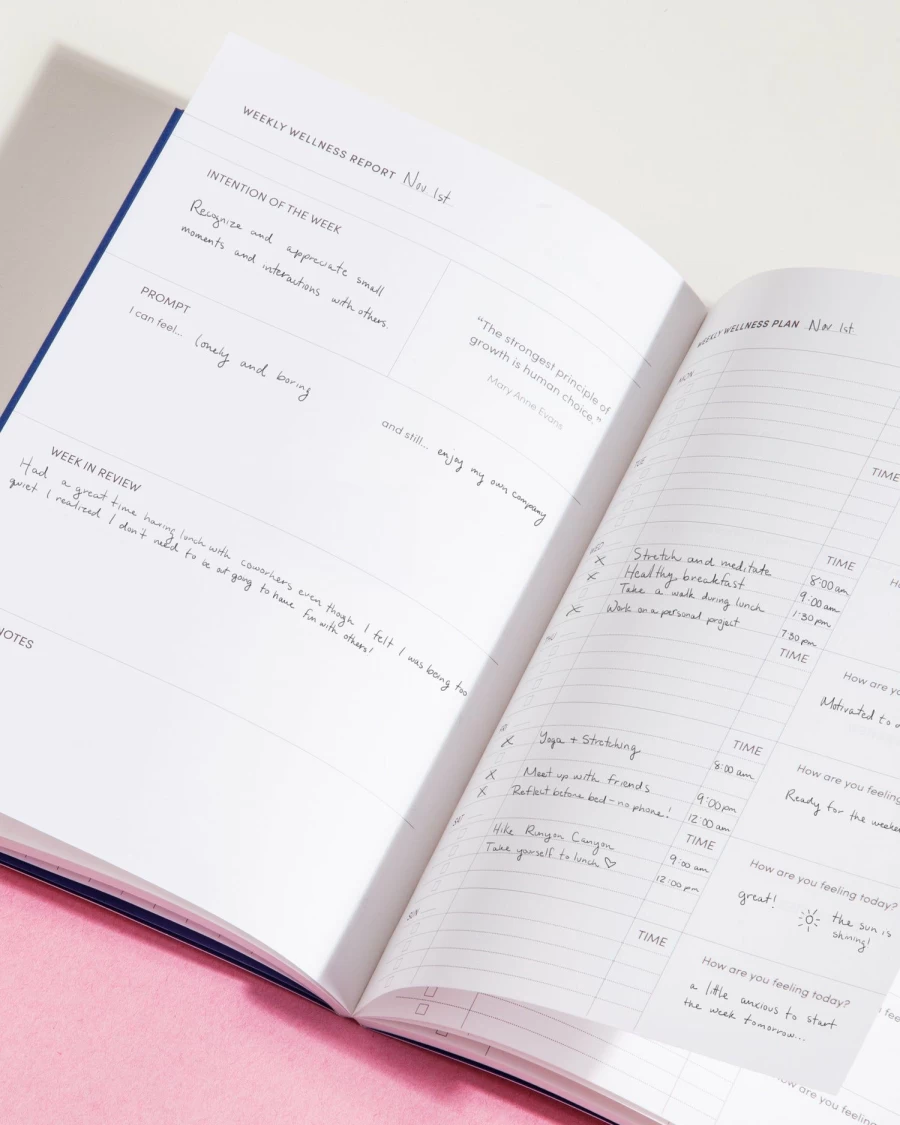 WEEKLY WELLNESS REPORT Nov 1st
INTENTION OF THE WEEK
Recognize and appreciate small
moments and interactions with others.
"The strongest principle of
growth is human choice."
Mary Anne Evans
PROMPT
I can feel... lonely and boring
and still... enjoy my own company
WEEK IN REVIEW
Had a great time having lunch with coworkers even though I felt I was being too
quiet I realized I don't need to be out going to have
fun with others!
NOTES
WEEKLY WELLNESS PLAN Nov 1st
MON
TUE
TIME
WED
TIME
X Stretch and meditate 8:00 am
X Healthy breakfast 9:00 am
Take a walk during lunch 1:30 pm
X Work on a personal project 7:30 pm
THU
TIME
How are you
Motivated to
TIME
X Yoga + Stretching 8:00 am
X Meet up with friends 9:00 pm
X Reflect before bed - no phone! 12:00 am
How are you feeling
Ready for the
SAT
TIME
Hike Runyon Canyon 9:00 am
Take yourself to lunch ♡ 12:00 pm
How are you feeling today?
great!
the sun is
shining!
SUN
TIME
How are you feeling today?
a little anxious to start
the week tomorrow...
How are you feeling